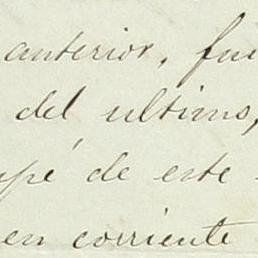 anterior, fue
del ultimo,
upé de este
en corriente